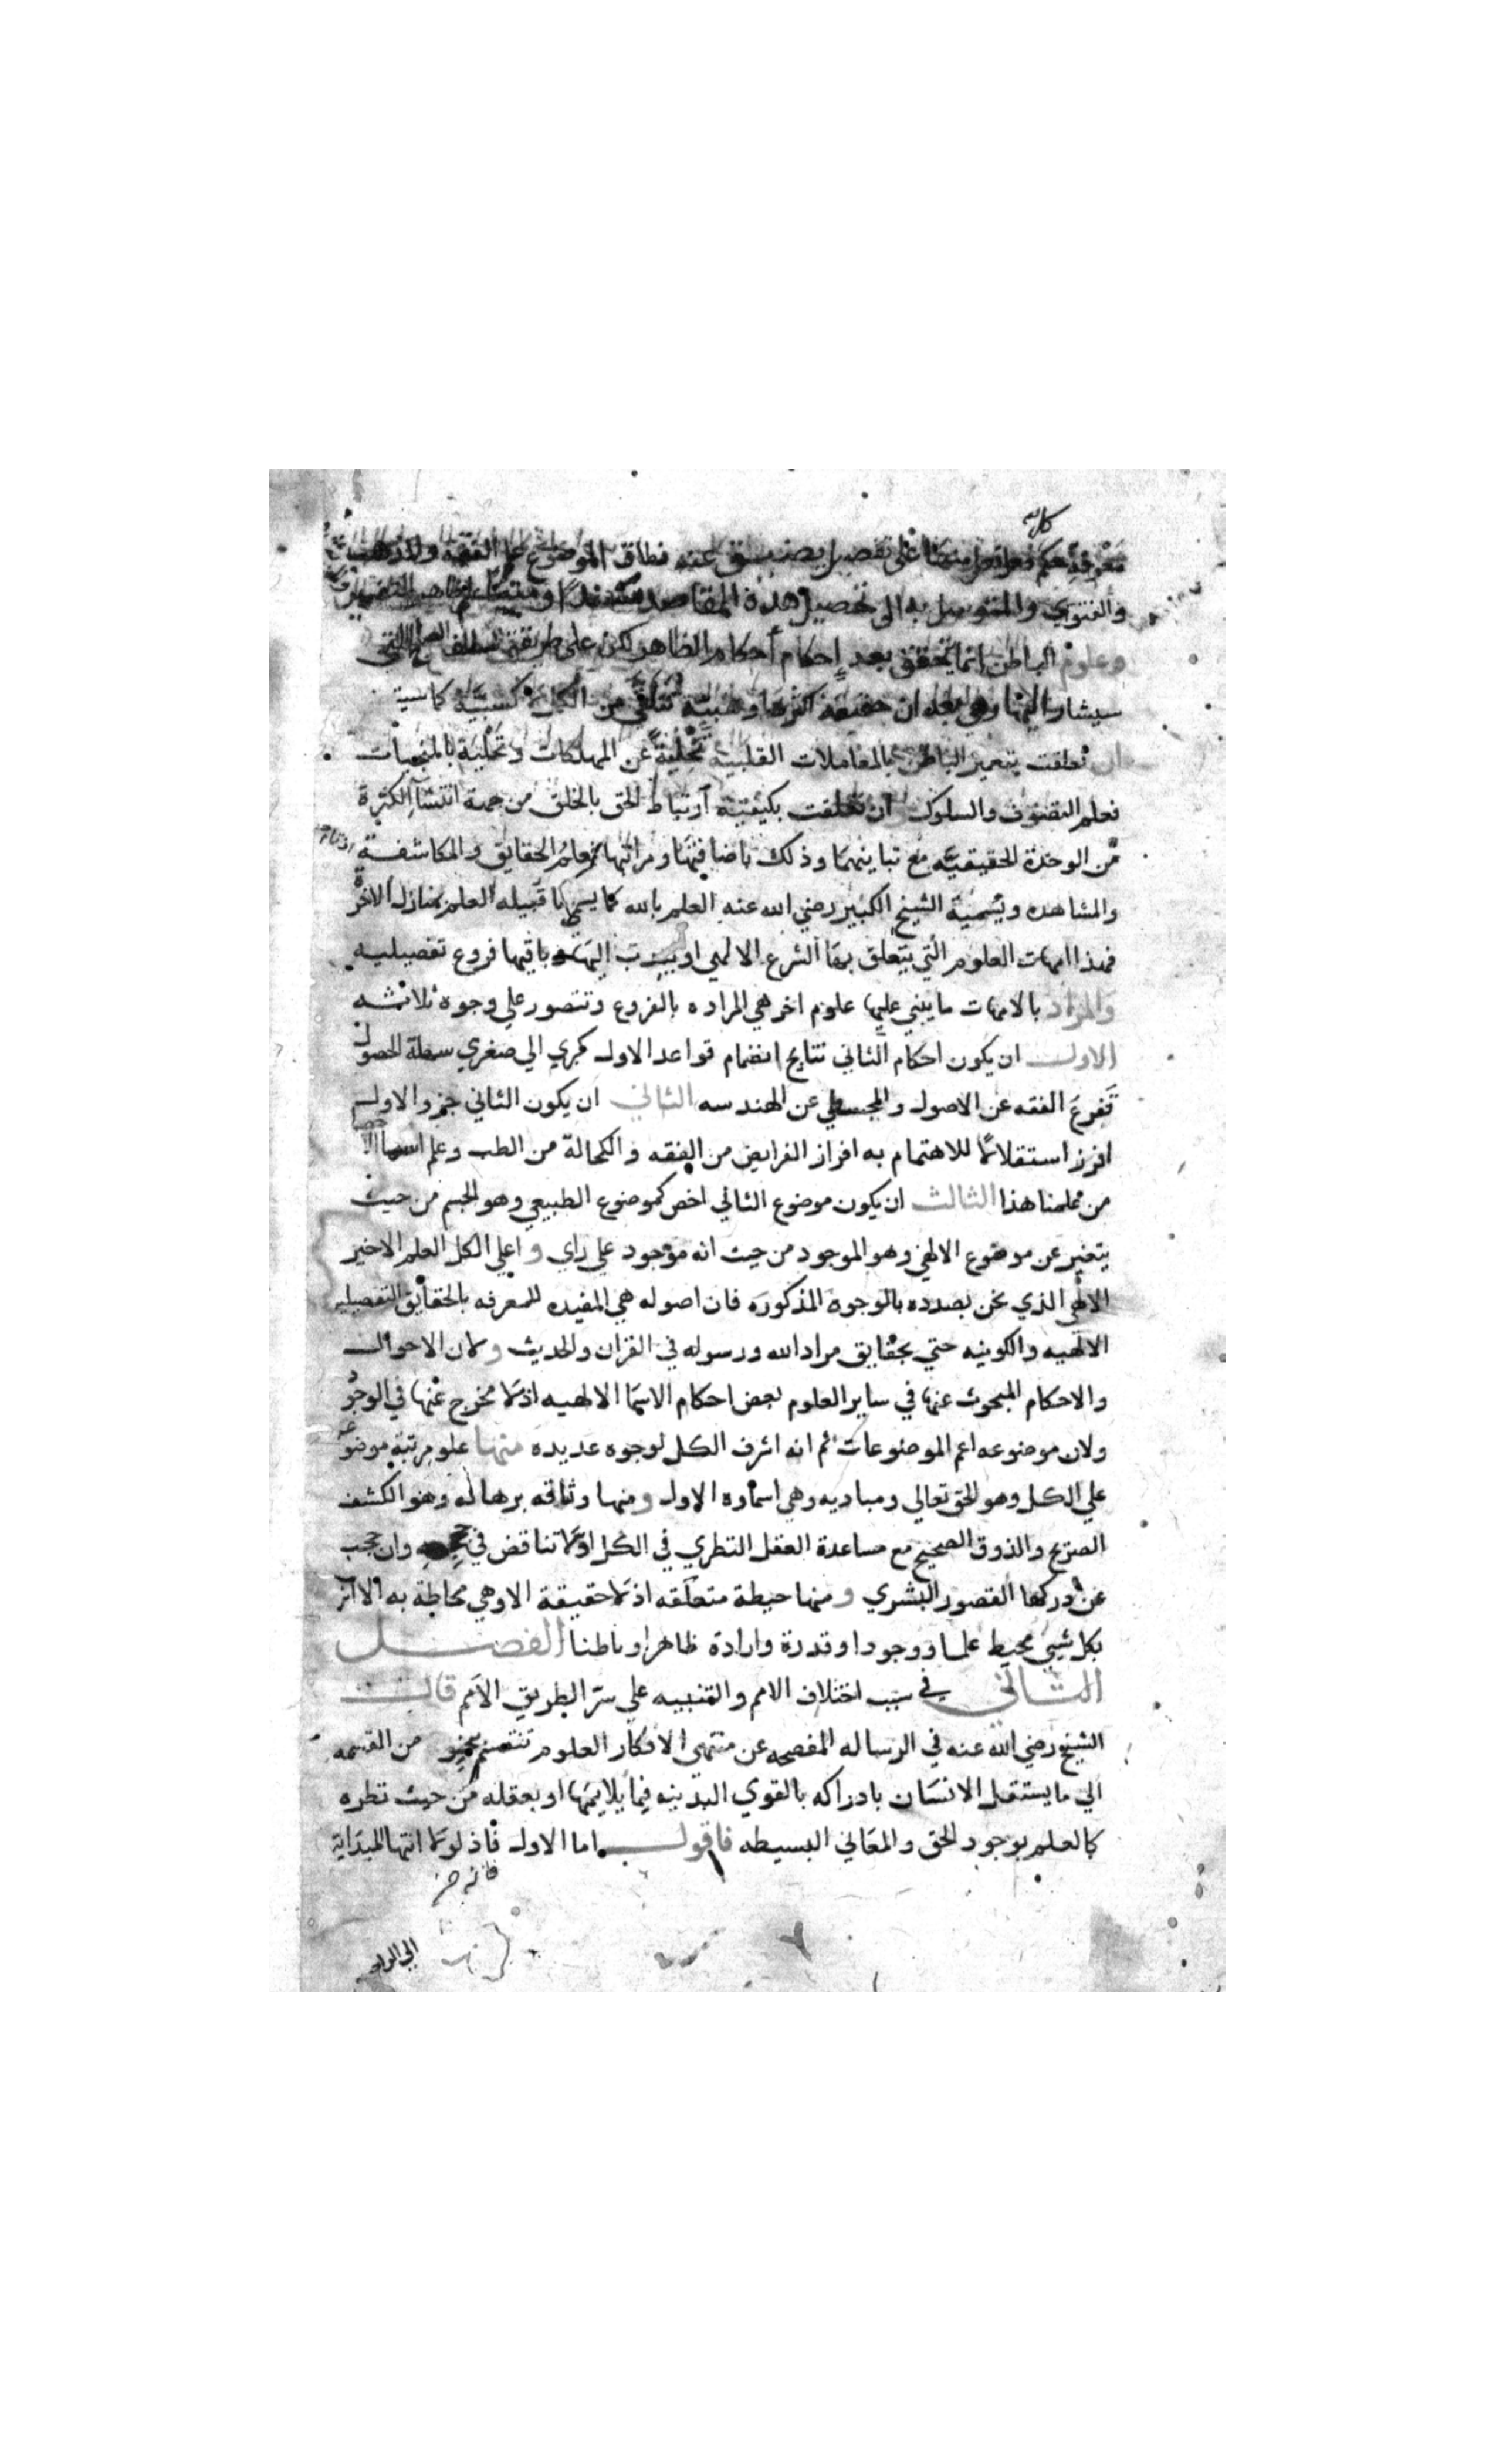 معرفة حكم على تفصيل يضيق عنه نطاق الموضوع علم الفقه
والفتوي والمتوسل به الى تحصيل هذه المقاصد
وعلوم الباطن انما تتحقق بعد إحكام أحكام الظاهر لكن على طريقة
سيشار اليها وهي وهبية تتلقى من كسبية كاسية
ان تعلقت بتعمير الباطن بالمعاملات القلبية تخلية عن المهلكات وتحلية بالمنجيات
فعلم التصوف والسلوك ان تعلقت بكيفية ارتباط الحق بالخلق من جهة انتشاء الكثرة
من الوحدة الحقيقية مع تباينهما وذلك باضافتها ومراتبها فعلم الحقايق والمكاشفة
والمشاهده ويسمية الشيخ الكبير رضي الله عنه العلم بالله كما يسمى ما قبيله العلم بمنازل الاخرة
فهذا امهات العلوم التي يتعلق بها الشرع الالهي اوينسب اليها وباقيها فروع تفصيليه
والمراد بالامهات ما يبني عليها علوم اخر هي المراده بالفروع وتتصور علي وجوه ثلاثه
الاول ان يكون احكام الثاني نتايج انضمام قواعد الاول كبري الي صغري سهلة الحصول
تفرع الفقه عن الاصول والمجسطي عن الهندسه الثاني ان يكون الثاني جزو الاول
افرز استقلالا للاهتمام به افراز الفرايض من الفقه والكحالة من الطب وعلم اسما
من علمنا هذا الثالث ان يكون موضوع الثاني اخص كموضوع الطبيعي وهو الجسم من حيث
يتغير عن موضوع الالهي وهو الموجود من حيث انه موجود علي راي واعلي الكل العلم الاخير
الالهي الذي نحن بصدده بالوجوه المذكوره فان اصوله هي المفيده للمعرفه بالحقايق التفصيليه
الالهيه والكونيه حتي بحقايق مراد الله ورسوله في القران والحديث ولان الاحوال
والاحكام المبحوث عنها في ساير العلوم بعض احكام الاسما الالهيه اذ لا مخرج عنها في الوجود
ولان موضوعه اعم الموضوعات ثم انه اشرف الكل لوجوه عديده منها علو مرتبة موضوعه
علي الكل وهو الحق تعالي ومباديه وهي اسماوه الاول ومنها وثاقه برهانه وهو الكشف
الصريح والذوق الصحيح مع مساعدة العقل النظري في الكل اذ لا تناقض في وان حجب
عن دركها القصور البشري ومنها حيطة متعلقه اذ لا حقيقة الا وهي محاطة به
بكل شيئ محيط علما ووجودا وقدرة وارادة ظاهرا وباطنا الفصل
الثاني في سبب اختلاف الامم والتنبيه علي سر الطريق الامم قال
الشيخ رضي الله عنه في الرساله المفصحه عن منتهى الافكار العلوم تنقسم من القسمه
الي ما يستقل الانسان بادراكه بالقوي البدنيه فيما يلايمها او بعقله من حيث نظره
كالعلم بوجود الحق والمعاني البسيطه فاقول اما الاول فاذ لولا انتها البداية